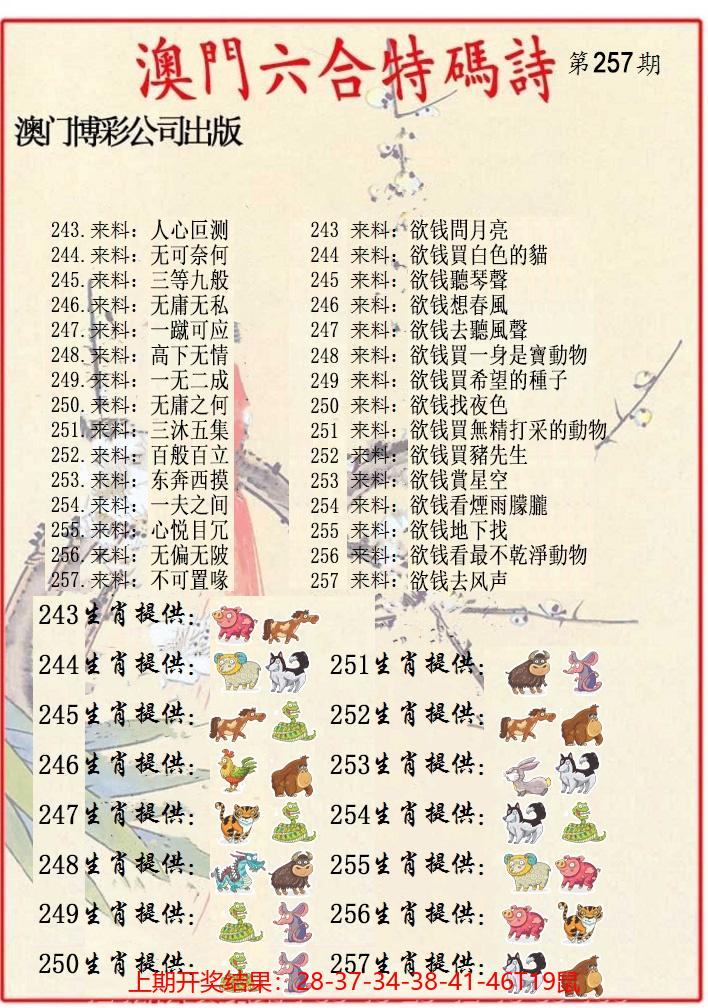 澳門六合特碼詩 第257期
澳门博彩公司出版
243.来料：人心叵测
244.来料：无可奈何
245.来料：三等九般
246.来料：无庸无私
247.来料：一蹴可应
248.来料：高下无情
249.来料：一无二成
250.来料：无庸之何
251.来料：三沐五集
252.来料：百般百立
253.来料：东奔西摸
254.来料：一夫之间
255.来料：心悦目冗
256.来料：无偏无陂
257.来料：不可置喙
243 来料：欲钱問月亮
244 来料：欲钱買白色的貓
245 来料：欲钱聽琴聲
246 来料：欲钱想春風
247 来料：欲钱去聽風聲
248 来料：欲钱買一身是寶動物
249 来料：欲钱買希望的種子
250 来料：欲钱找夜色
251 来料：欲钱買無精打采的動物
252 来料：欲钱買豬先生
253 来料：欲钱賞星空
254 来料：欲钱看煙雨朦朧
255 来料：欲钱地下找
256 来料：欲钱看最不乾淨動物
257 来料：欲钱去风声
243生肖提供：
244生肖提供：
245生肖提供：
246生肖提供：
247生肖提供：
248生肖提供：
249生肖提供：
250生肖提供：
251生肖提供：
252生肖提供：
253生肖提供：
254生肖提供：
255生肖提供：
256生肖提供：
257生肖提供：
上期开奖结果：28-37-34-38-41-46T19鼠